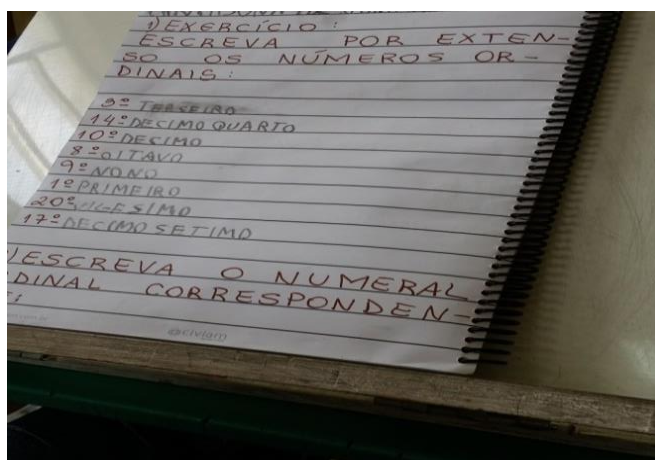 1) EXERCÍCIO :
ESCREVA POR EXTEN-
SO OS NÚMEROS OR-
DINAIS :
3º TERSEIRO
14º DECIMO QUARTO
10º DECIMO
8º OITAVO
9º NONO
1º PRIMEIRO
20º VIGESIMO
17º DECIMO SETIMO
) ESCREVA O NUMERAL
DINAL CORRESPONDEN-
: